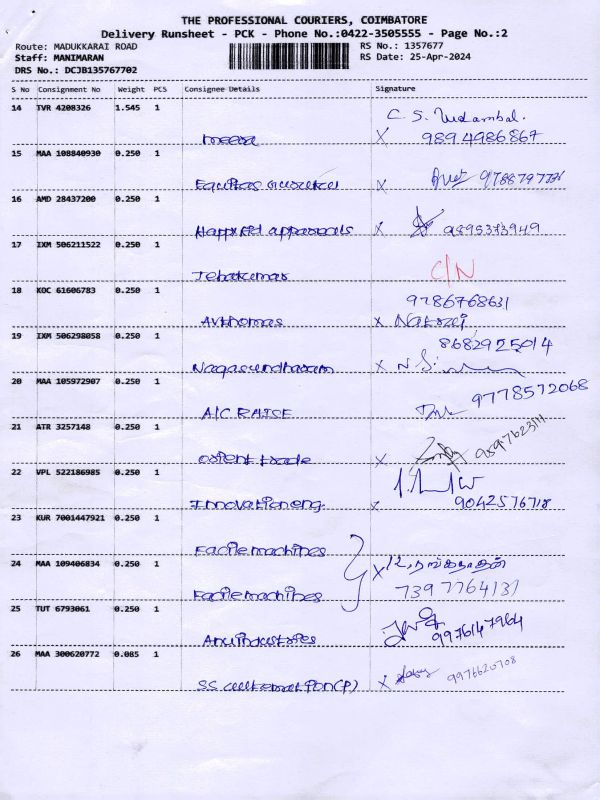 THE PROFESSIONAL COURIERS, COIMBATORE
Delivery Runsheet - PCK - Phone No.:0422-3505555 - Page No.:2
Route: MADUKKARAI ROAD RS No.: 1357677
Staff: MANIMARAN RS Date: 25-Apr-2024
DRS No.: DCJB135767702
S No Consignment No Weight PCS Consignee Details Signature
14 TVR 4208326 1.545 1 C. S.
meera X 9894986867
15 MAA 108840930 0.250 1
Equitas X
16 AMD 28437200 0.250 1
Happyfit apparals X 9895373949
17 IXM 506211522 0.250 1
Jebakumar C/N
18 KOC 61606783 0.250 1 9786768631
AVthomas X
19 IXM 506298058 0.250 1 8682925014
Nagasundharam X
20 MAA 105972907 0.250 1 9778572068
A/C RAISE
21 ATR 3257148 0.250 1
orient trade X
22 VPL 522186985 0.250 1
Innovation eng X 9042576718
23 KUR 7001447921 0.250 1
Facile machines
24 MAA 109406834 0.250 1 X
Facile machines 7397764131
25 TUT 6793061 0.250 1
Anu industries 9976147964
26 MAA 300620772 0.085 1
SS (P) X 9976620708